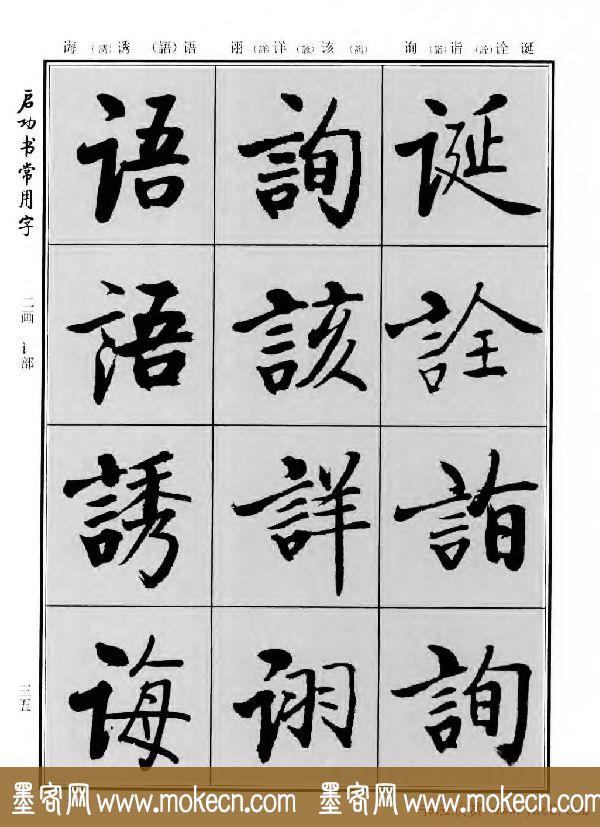 诲（誘）诱（語）语 诩（詳）详（該）该（詢） 询（詣）诣（詮）诠 诞
诞詮詣詢
詢該詳诩
语語誘诲
启功书常用字
二画 讠部
三五
墨客网 www.mokecn.com 墨客网 www.mokecn.com